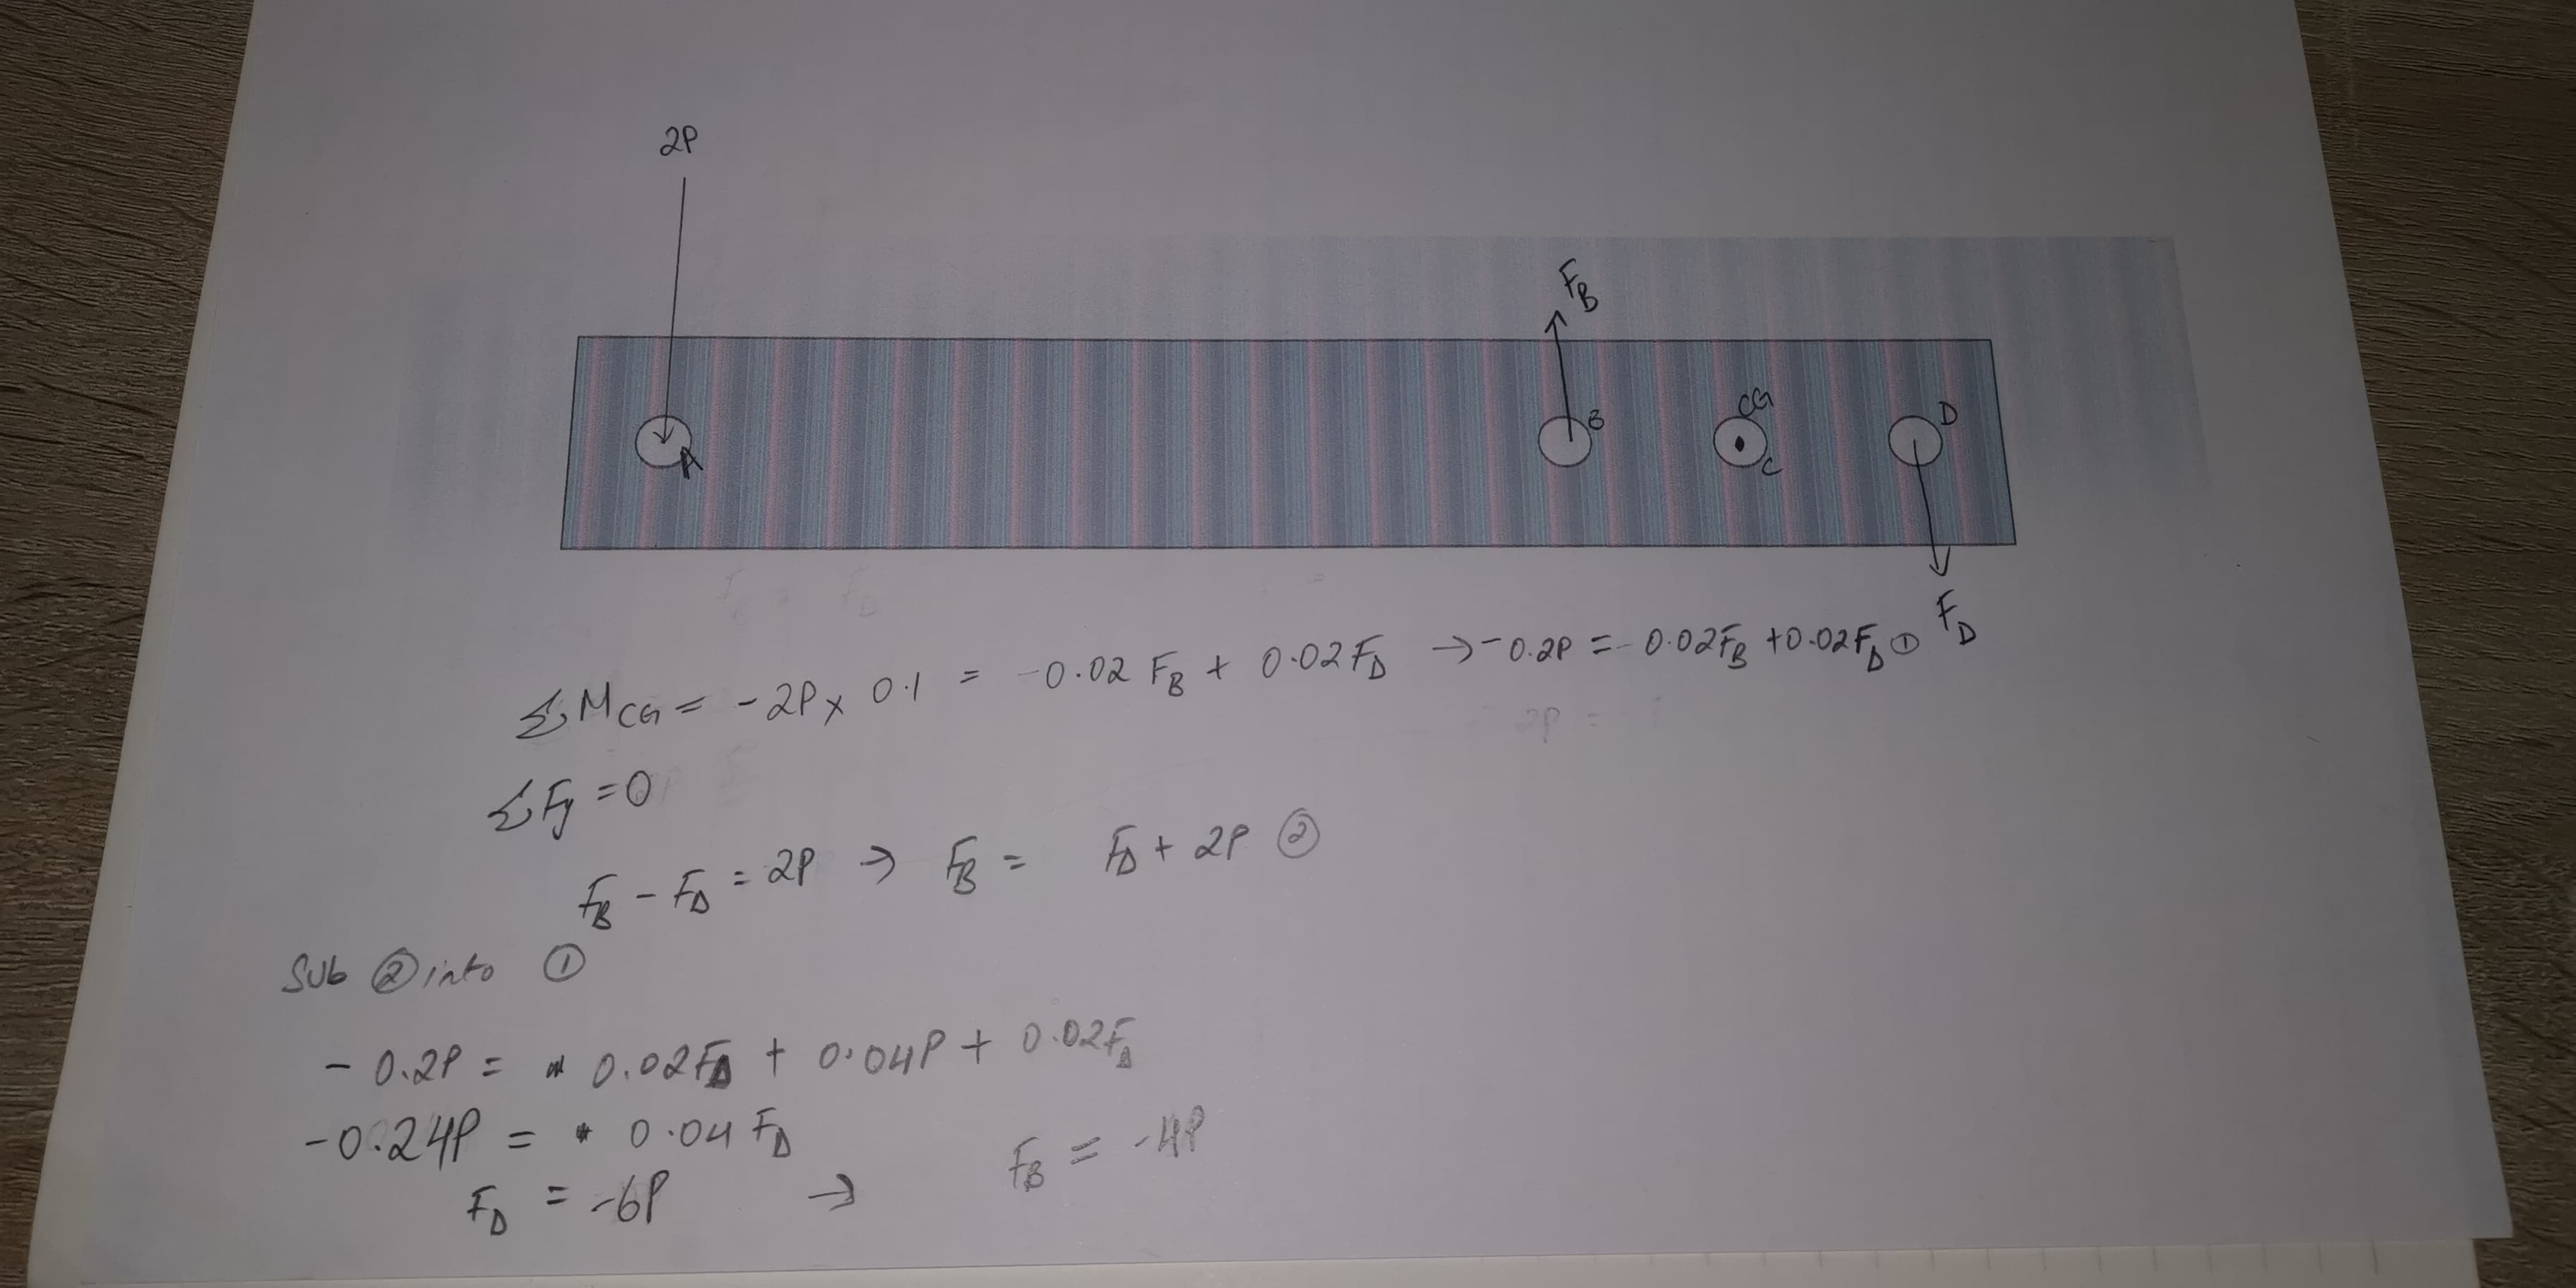 2P
F_B
B
CG
C
D
A
F_D
ΣM_CG = -2P x 0.1 = -0.02 F_B + 0.02 F_D → -0.2P = -0.02F_B + 0.02F_D ①
ΣFy = 0
F_B - F_D = 2P → F_B = F_D + 2P ②
Sub ② into ①
- 0.2P = 0.02F_D + 0.04P + 0.02F_D
-0.24P = 0.04 F_D
F_D = -6P → F_B = -4P